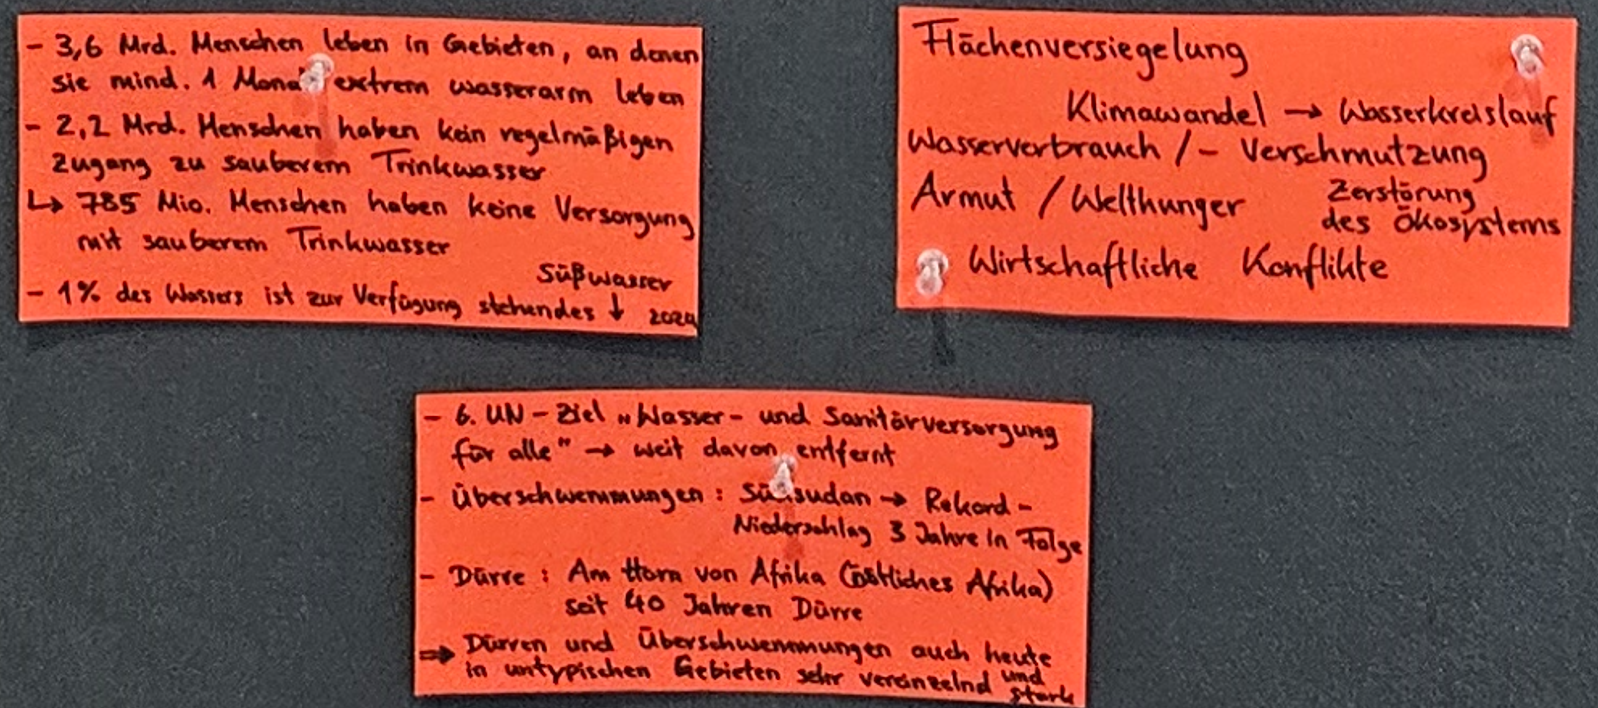 - 3,6 Mrd. Menschen leben in Gebieten, an denen
sie mind. 1 Monat extrem wasserarm leben
- 2,2 Mrd. Menschen haben kein regelmäßigen
Zugang zu sauberem Trinkwasser
↳ 785 Mio. Menschen haben keine Versorgung
mit sauberem Trinkwasser
Süßwasser
- 1% des Wassers ist zur Verfügung stehendes ↓ 2024
Flächenversiegelung
Klimawandel → Wasserkreislauf
Wasserverbrauch / - Verschmutzung
Armut / Welthunger
Zerstörung
des Ökosystems
Wirtschaftliche Konflikte
- 6. UN - Ziel „Wasser- und Sanitärversorgung
für alle" → weit davon entfernt
- Überschwemmungen: Südsudan → Rekord-
Niederschlag 3 Jahre in Folge
- Dürre: Am Horn von Afrika (östliches Afrika)
seit 40 Jahren Dürre
⇒ Dürren und Überschwemmungen auch heute
in untypischen Gebieten sehr vereinzelnd und
stark